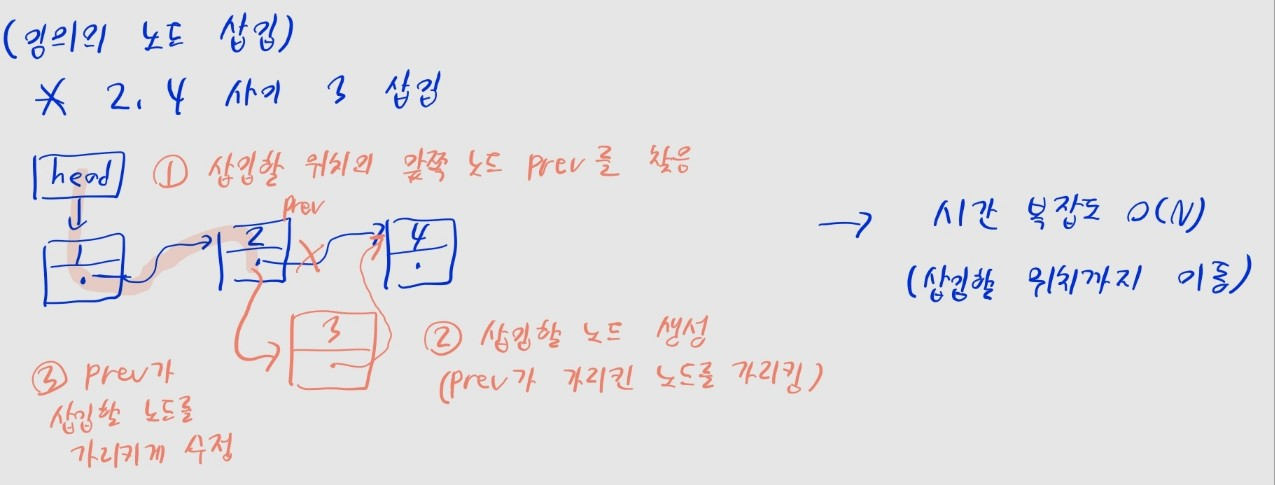 (임의의 노드 삽입)
※ 2, 4 사이 3 삽입
head
① 삽입할 위치의 앞쪽 노드 prev를 찾음
prev
1
2
4
3
② 삽입할 노드 생성
(prev가 가리킨 노드를 가리킴)
③ prev가
삽입할 노드를
가리키게 수정
→ 시간 복잡도 O(N)
(삽입할 위치까지 이동)